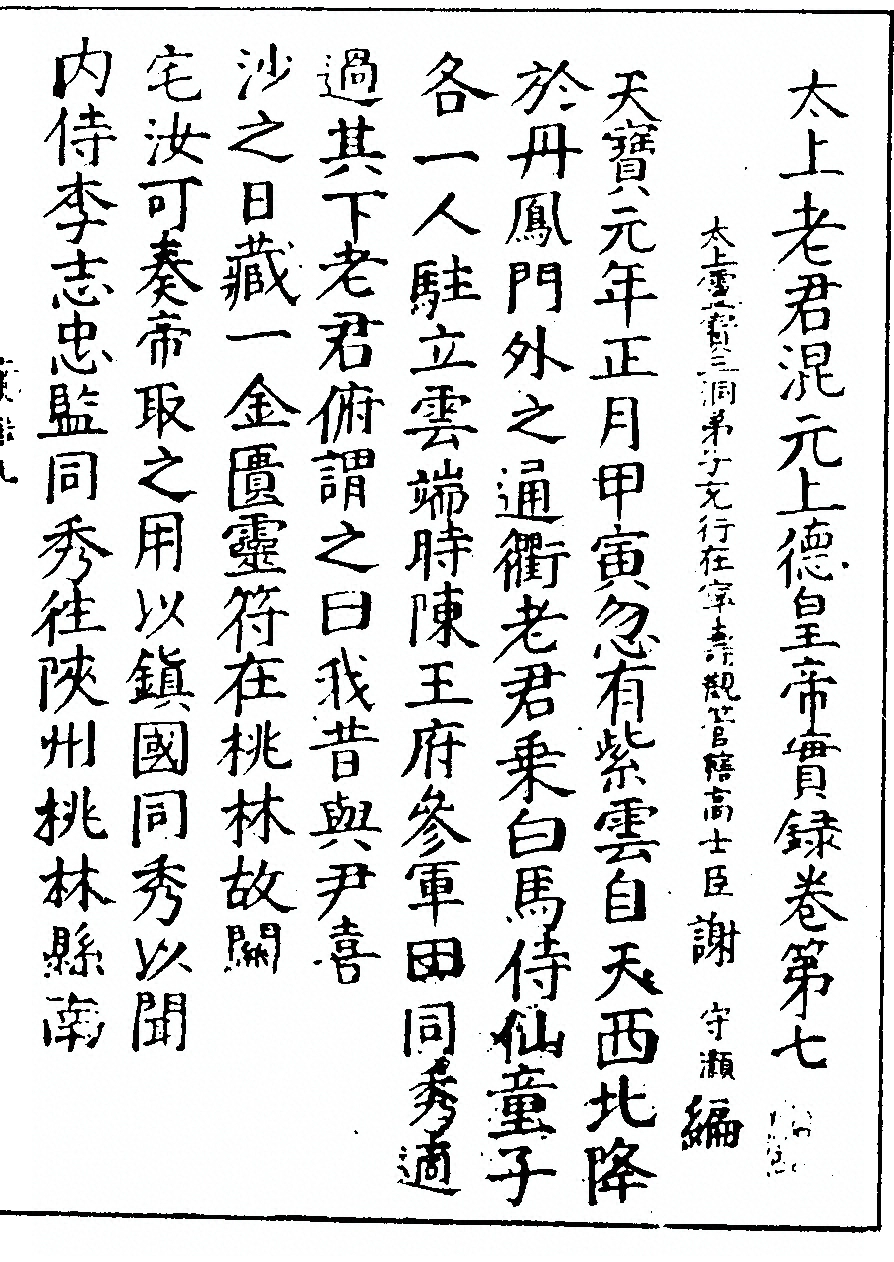 太上老君混元上德皇帝實録卷第七
太上靈寶三洞弟子充行在寧壽觀管轄高士臣謝守灝編
天寶元年正月甲寅忽有紫雲自天西北降
於丹鳳門外之通衢老君乗白馬侍仙童子
各一人駐立雲端時陳王府參軍田同秀適
過其下老君俯謂之曰我昔與尹喜
沙之日藏一金匱靈符在桃林故關
宅汝可奏帝取之用以鎮國同秀以聞
内侍李志忠監同秀往陜州桃林縣南